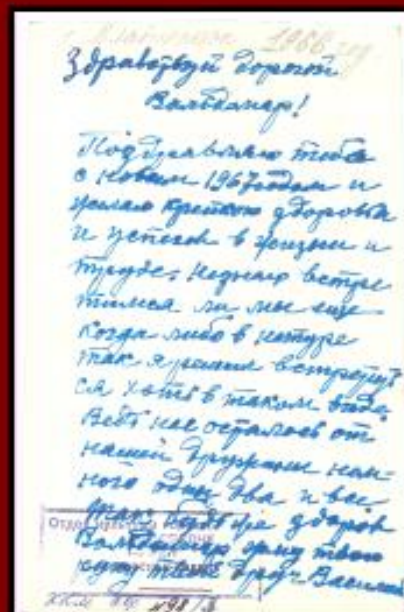 1966 год
Здравствуй дорогой
Вольдемар!
Поздравляю тебя
с новым 1967 годом и
желаю крепкого здоровья
и успехов в жизни и
труде. Незнаю встре
тимся ли мы еще
когда либо в натуре
так я решил встретит
ся хотя в таком виде
Ведь нас осталось от
нашей дружины нем
ного один два и все
здоров
Вольдемар жму твою
руку твой друг Василий
Отдел культуры
ККМ
498/3